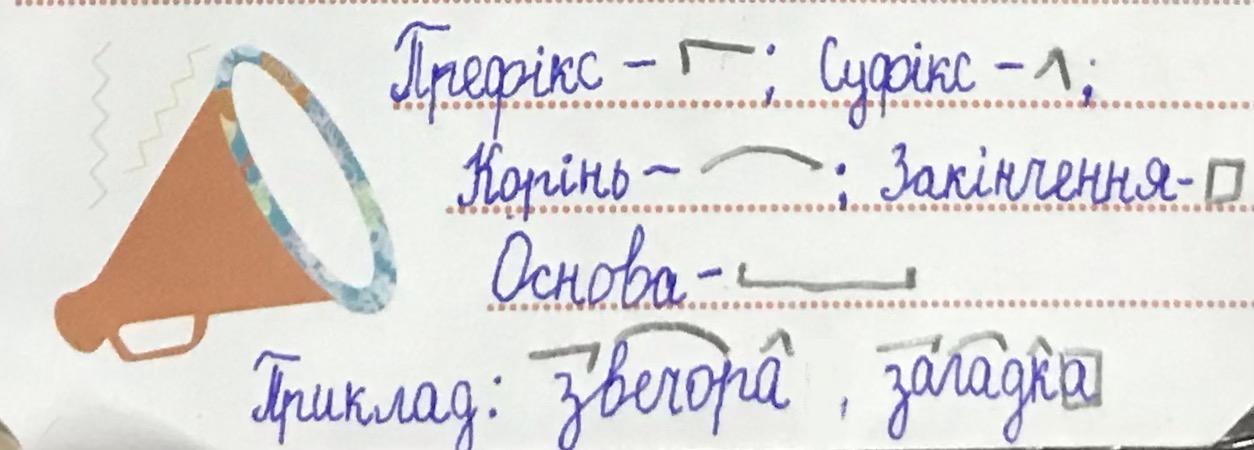 Префікс - ; Суфікс - ;
Корінь - ; Закінчення -
Основа -
Приклад: звечора , загадка